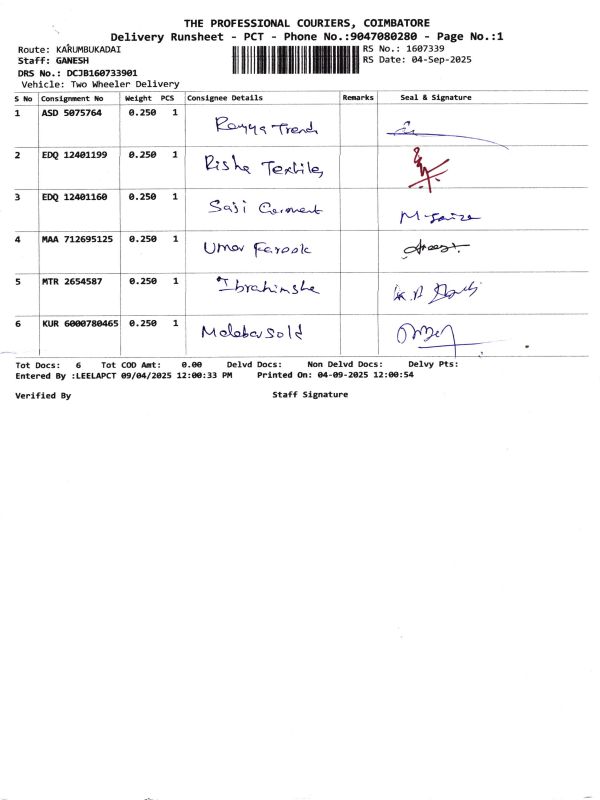 THE PROFESSIONAL COURIERS, COIMBATORE
Delivery Runsheet - PCT - Phone No.:9047080280 - Page No.:1
Route: KARUMBUKADAI RS No.: 1607339
Staff: GANESH RS Date: 04-Sep-2025
DRS No.: DCJB160733901
Vehicle: Two Wheeler Delivery
S No Consignment No Weight PCS Consignee Details Remarks Seal & Signature
1 ASD 5075764 0.250 1 Trend
2 EDQ 12401199 0.250 1 Risha Textiles
3 EDQ 12401160 0.250 1 Saji Garment
4 MAA 712695125 0.250 1 Umar Farook
5 MTR 2654587 0.250 1 Ibrahimsha
6 KUR 6000780465 0.250 1 Malabar Gold
Tot Docs: 6 Tot COD Amt: 0.00 Delvd Docs: Non Delvd Docs: Delvy Pts:
Entered By :LEELAPCT 09/04/2025 12:00:33 PM Printed On: 04-09-2025 12:00:54
Verified By Staff Signature